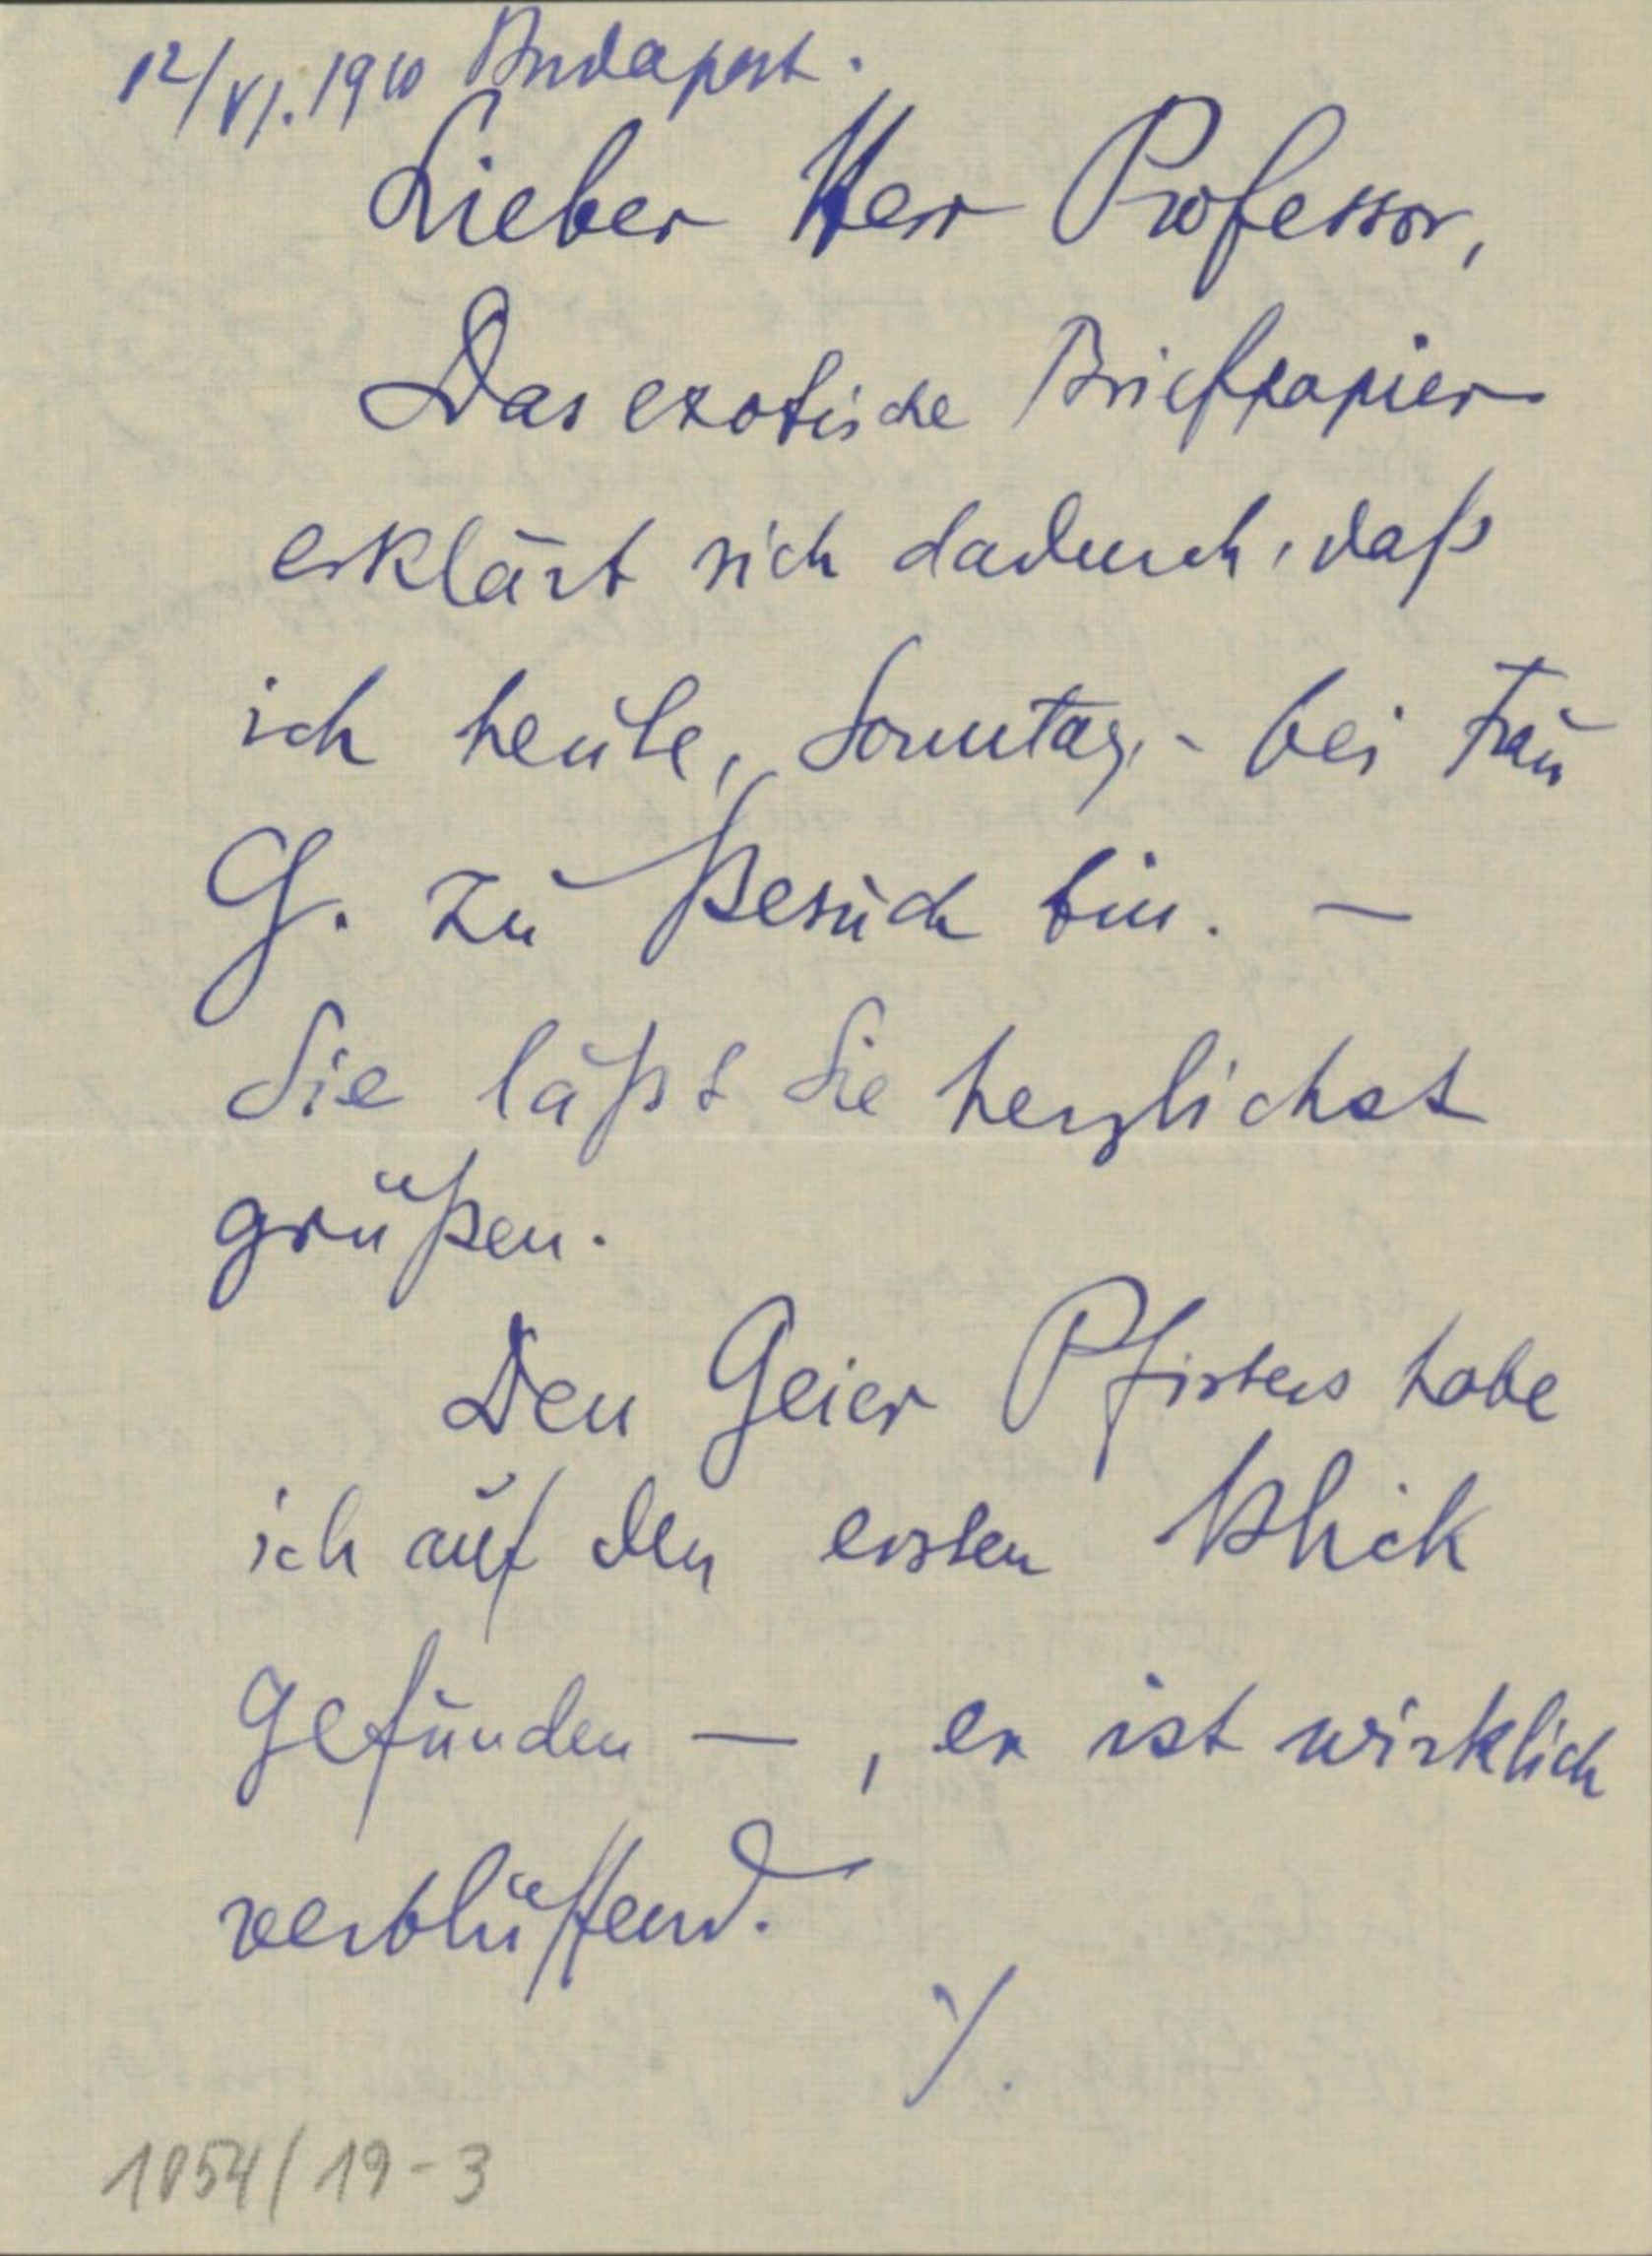 12/VI. 1910 Budapest.
Lieber Herr Professor,
Das exotische Briefpapier
erklärt sich dadurch, daß
ich heute, Sonntag, - bei Frau
G. zu Besuch bin. —
Sie läßt Sie herzlichst
grüßen.
Den Geier Pfisters habe
ich auf den ersten Blick
gefunden —, er ist wirklich
verblüffend.
./.
1054/19-3